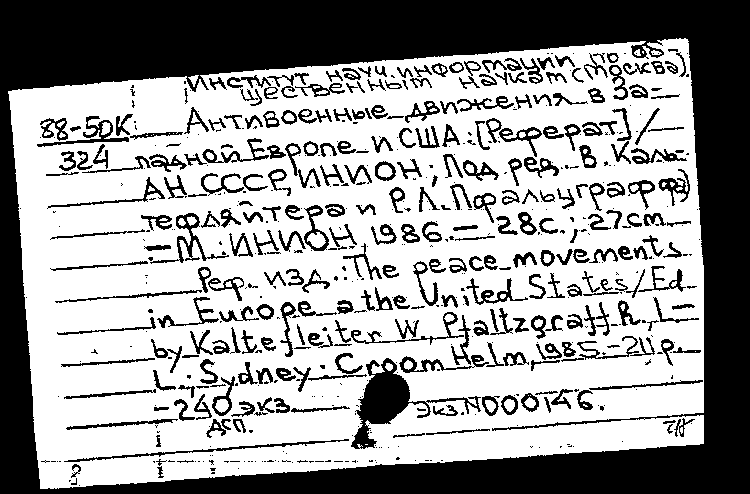 Институт науч. информации по об
щественным наукам (Москва).
88-5DK Антивоенные движения в За-
324 падной Европе и США: [Реферат] /
АН СССР, ИНИОН; Под ред. В. Каль-
тефляйтера и Р.Л. Пфальцграффа)
— М.: ИНИОН, 1986. — 28с.; 27см.
Реф. изд.: The peace movements
in Europe a the United States/Ed
by Kaltefleiter W., Pfaltzgraff R., L—
L.; Sydney: Croom Helm, 1985.-211 p.
-240 экз. Экз.N000146.
ДСП.